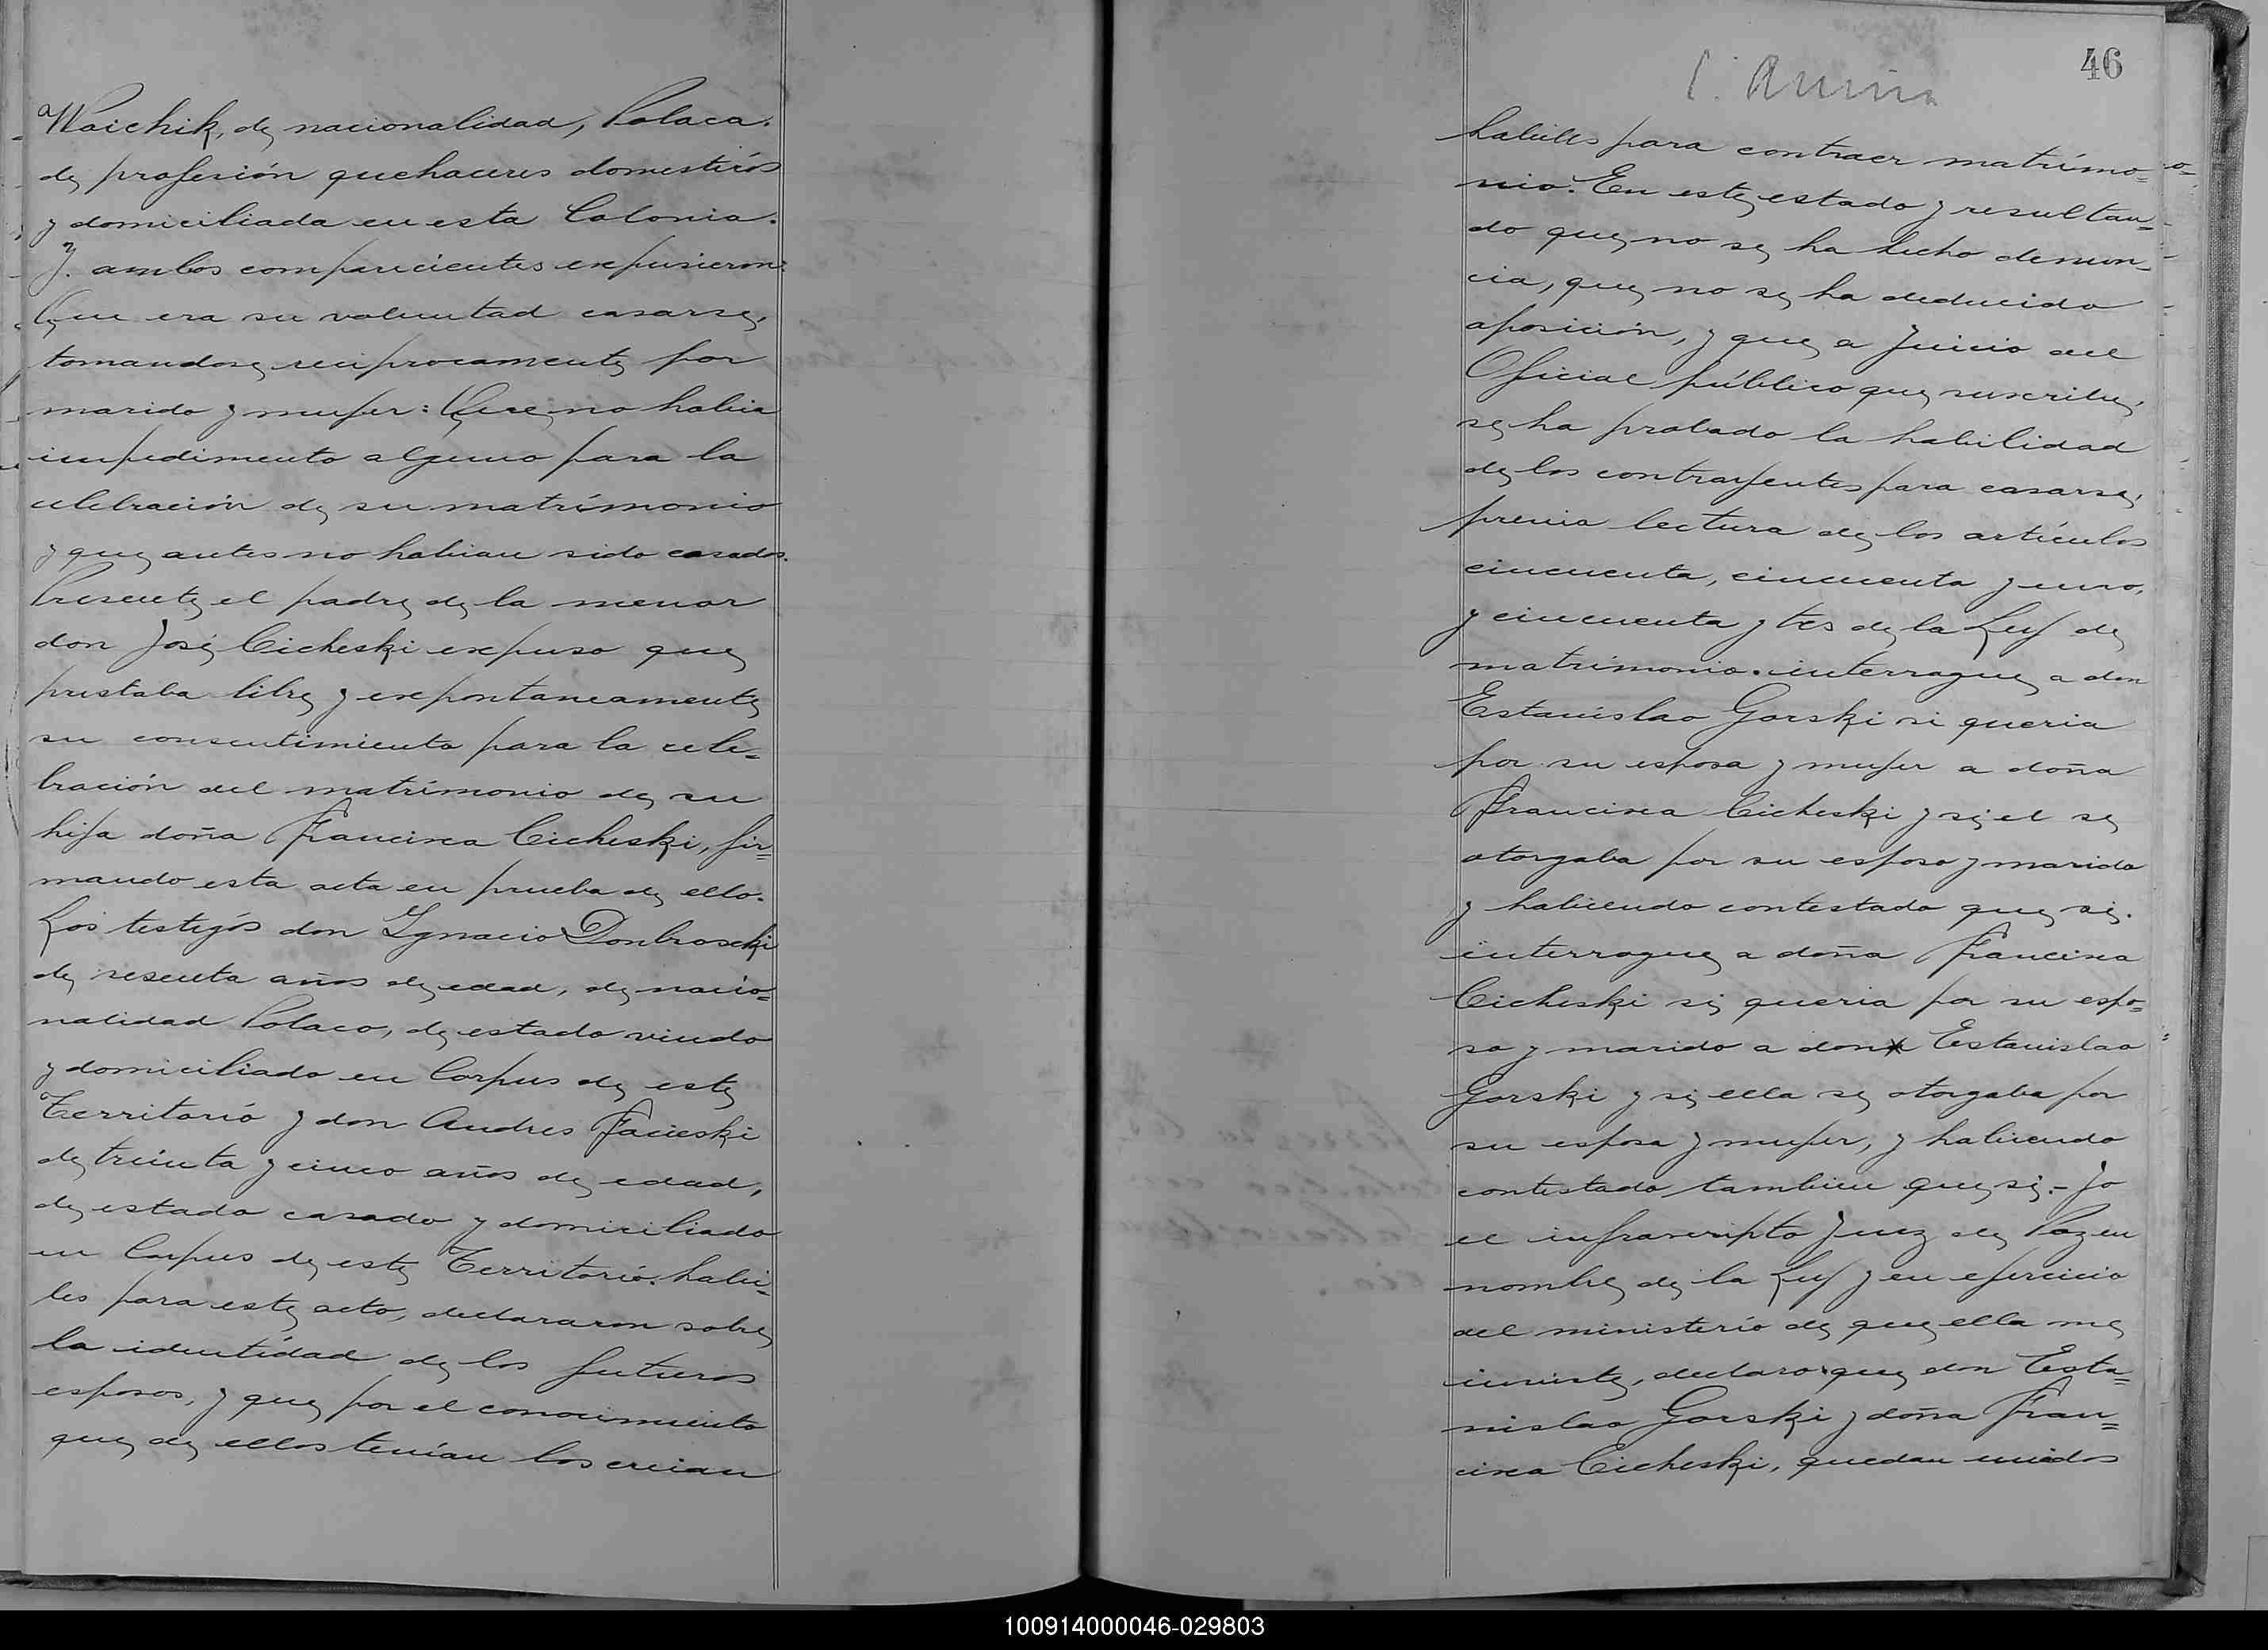 Waichik, de nacionalidad, Polaca.
de profesión quehaceres domesticós
y domiciliada en esta Colonia.
Y. ambos comparecientes expusieron:
Que era su voluntad casarse,
tomandose reciprocamente por
marido y mujer: Que no habia
impedimento alguno para la
celebración de su matrímonio
y que antes no habian sido casados.
Presente el padre de la menor
don José Cicheski expuso que
prestaba libre y expontaneamente
su consentimiento para la cele=
bración del matrímonio de su
hija doña Francisca Cicheski, fir=
mando esta acta en prueba de ello.
Los testigós don Ygnacio Donbroscki
de sesenta años de edad, de nacio=
nalidad Polaco, de estado viudo
y domiciliado en Corpus de este
Territorio y don Andres Facieski
de treinta y cinco años de edad,
de estado casado y domiciliado
en Corpus de este Territorio. habi=
les para este acto, declararon sobre
la identidad de los futuros
esposos, y que por el conocimiento
que de ellos tenían los creian
46
habiles para contraer matrímo=
nio. En este estado y resultan=
do que no se ha hecho denun=
cia, que no se ha deducido
oposición, y que a Juicio del
Oficial público que suscribe,
se ha probado la habilidad
de los contrayentes para casarse,
previa lectura de los artículos
cincuenta, cincuenta y uno,
y cincuenta y tres de la Ley de
matrímonio. interrogue a don
Estanislao Gorski si queria
por su esposa y mujer a doña
Francisca Cicheski y si el se
otorgaba por su esposo y marido
y habiendo contestado que si.
interrogue a doña Francisca
Cicheski si queria por su espo=
so y marido a don Estanislao
Gorski y si ella se otorgaba por
su esposa y mujer, y habiendo
contestado tambien que si.- Yo
el infrascripto Juez de Paz en
nombre de la Ley y en ejercicio
del ministerio de que ella me
inviste, declaro que don Esta=
nislao Gorski y doña Fran=
cisca Cicheski, quedan unidos
100914000046-029803